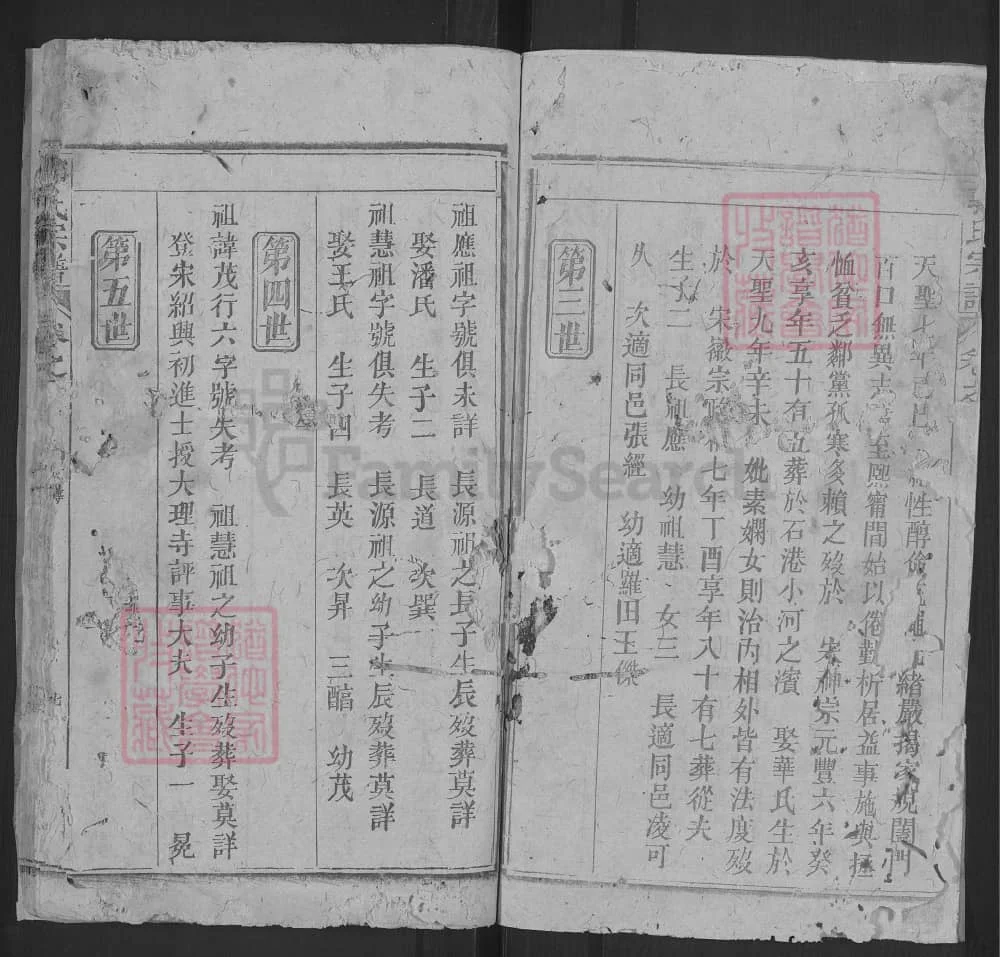 天聖七年己巳 性醇儉 緒嚴揭家規閨門
百口無異志 至熙甯間始以倦勤析居益事施與拯
恤貧乏鄰黨孤寒多賴之歿於 宋神宗元豐六年癸
亥享年五十有五葬於石港小河之濱 娶華氏生於
天聖九年辛未 妣素嫻女則治內相外皆有法度歿
於 宋徽宗 七年丁酉享年八十有七葬從夫
生子二 長祖應 幼祖慧 女三 長適同邑凌可
久 次適同邑張經 幼適羅田王傑
第三世
祖應祖字號俱未詳 長源祖之長子生辰歿葬莫詳
娶潘氏 生子二 長道 次巽
祖慧祖字號俱失考 長源祖之幼子生辰歿葬莫詳
娶王氏 生子四 長英 次昇 三醕 幼茂
第四世
祖諱茂行六字號失考 祖慧祖之幼子生歿葬娶莫詳
登宋紹興初進士授大理寺評事大夫 生子一 冕
第五世
氏宗譜
FamilySearch